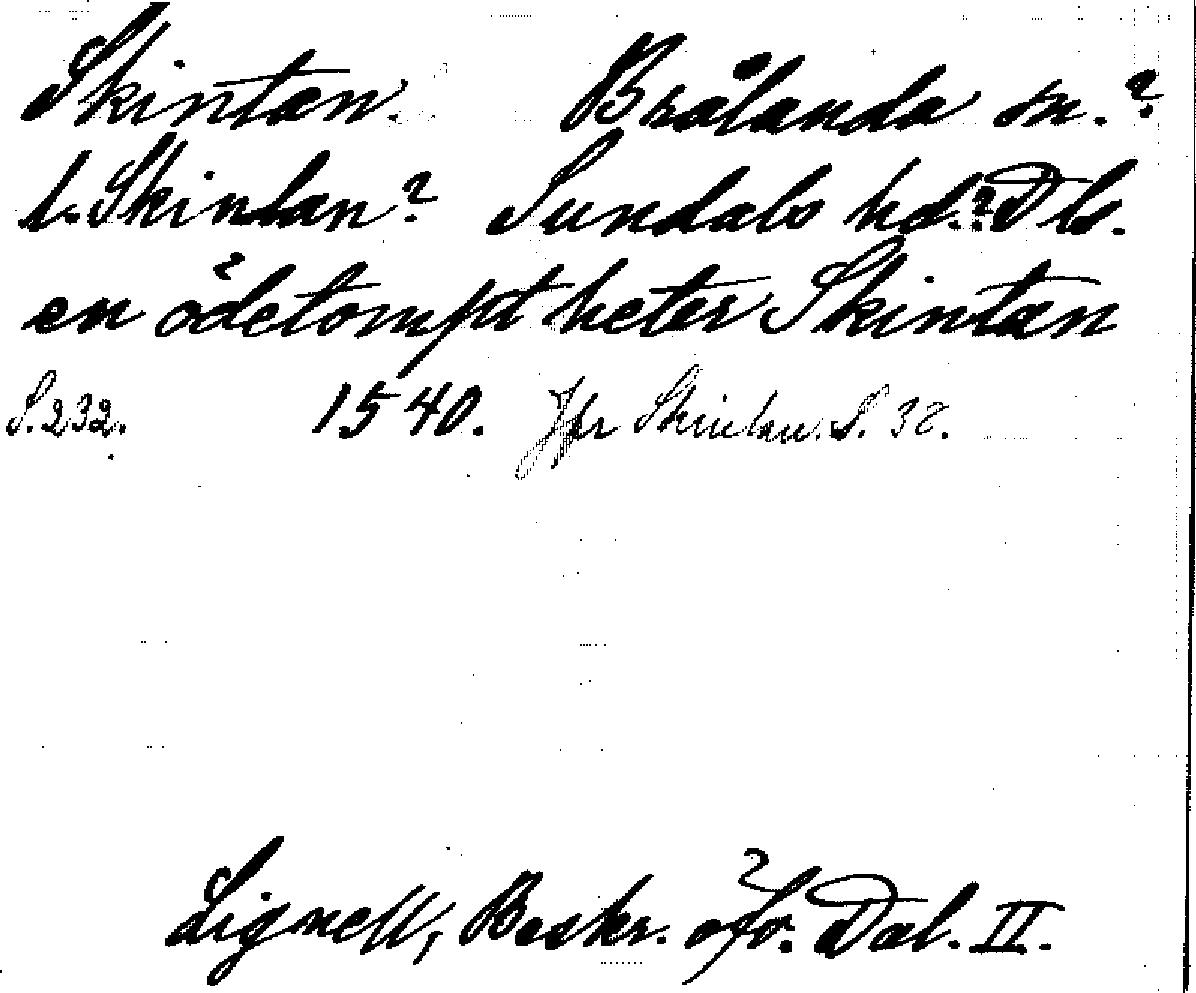 Skintan. Brålanda sn.?
l. Skinlan? Sundals hd.? Dls.
en ödetompt heter Skintan
S. 232. 1540. Jfr Skinlan. S. 38.
Lignell, Beskr. öfv. Dal. II.